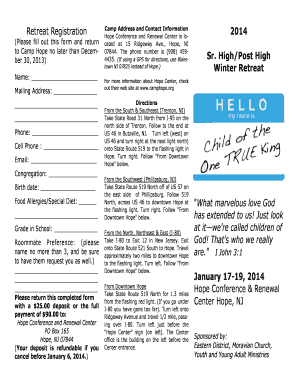 Retreat Registration
(Please fill out this form and return
to Camp Hope no later than Decem-
ber 30, 2013)
Name:
Mailing Address:
Phone:
Cell Phone :
Email:
Congregation:
Birth date:
Food Allergies/Special Diet:
Grade in School:
Roommate Preference: (please
name no more than 3, and be sure
to have them request you as well.)
Please return this completed form
with a $25.00 deposit or the full
payment of $90.00 to:
Hope Conference and Renewal Center
PO Box 165
Hope, NJ 07844
(Your deposit is refundable if you
cancel before January 6, 2014.)
Camp Address and Contact Information
Hope Conference and Renewal Center is lo-
cated at 15 Ridgeway Ave., Hope, NJ
07844. The phone number is (908) 459-
4435. (If using a GPS for directions, use Blairs-
town NJ 07825 instead of Hope.)
For more information about Hope Center, check
out their web site at www.camphope.org
Directions
From the South & Southeast (Trenton, NJ)
Take State Road 31 North from I-95 on the
north side of Trenton. Follow to the end at
US 46 in Buttzville, NJ. Turn left (west) on
US 46 and turn right at the next light (north)
onto State Route 519 to the flashing light in
Hope. Turn right. Follow "From Downtown
Hope" below.
From the Southwest (Phillipsburg, NJ)
Take State Route 519 North off of US 57 on
the east side of Phillipsburg. Follow 519
North, across US 46 to downtown Hope at
the flashing light. Turn right. Follow "From
Downtown Hope" below.
From the North, Northeast & East (I-80)
Take I-80 to Exit 12 in New Jersey. Exit
onto State Route 521 South to Hope. Travel
approximately two miles to downtown Hope
to the flashing light. Turn left. Follow "From
Downtown Hope" below.
From Downtown Hope
Take State Route 519 North for 1.3 miles
from the flashing red light. (If you go under
I-80 you have gone too far). Turn left onto
Ridgeway Avenue and travel 1/2 mile, pass-
ing over I-80. Turn left just before the
"Hope Center" sign (on left). The Center
office is the building on the left before the
Center entrance.
2014
Sr. High/Post High
Winter Retreat
HELLO
my name is
Child of the
One TRUE King
"What marvelous love God
has extended to us! Just look
at it—we're called children of
God! That's who we really
are." I John 3:1
January 17-19, 2014
Hope Conference & Renewal
Center Hope, NJ
Sponsored by:
Eastern District, Moravian Church,
Youth and Young Adult Ministries